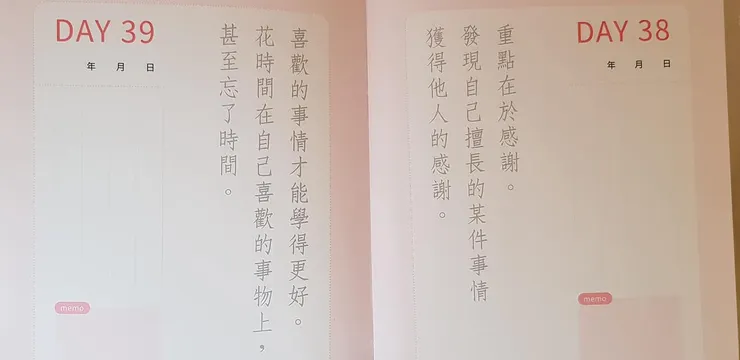 DAY 38
年 月 日
重點在於感謝。
發現自己擅長的某件事情
獲得他人的感謝。
memo
DAY 39
年 月 日
喜歡的事情才能學得更好。
花時間在自己喜歡的事物上，
甚至忘了時間。
memo